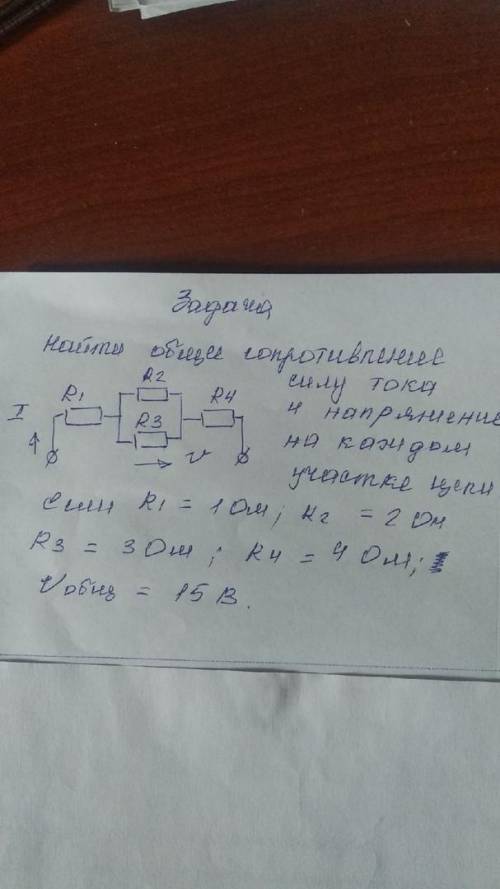 Задача
Найти общее сопротивление
силу тока
и напряжение
на каждом
участке цепи
R2
R1
R4
I
R3
V
Если R1 = 1 Ом; R2 = 2 Ом
R3 = 3 Ом; R4 = 4 Ом;
Vобщ = 15 В.